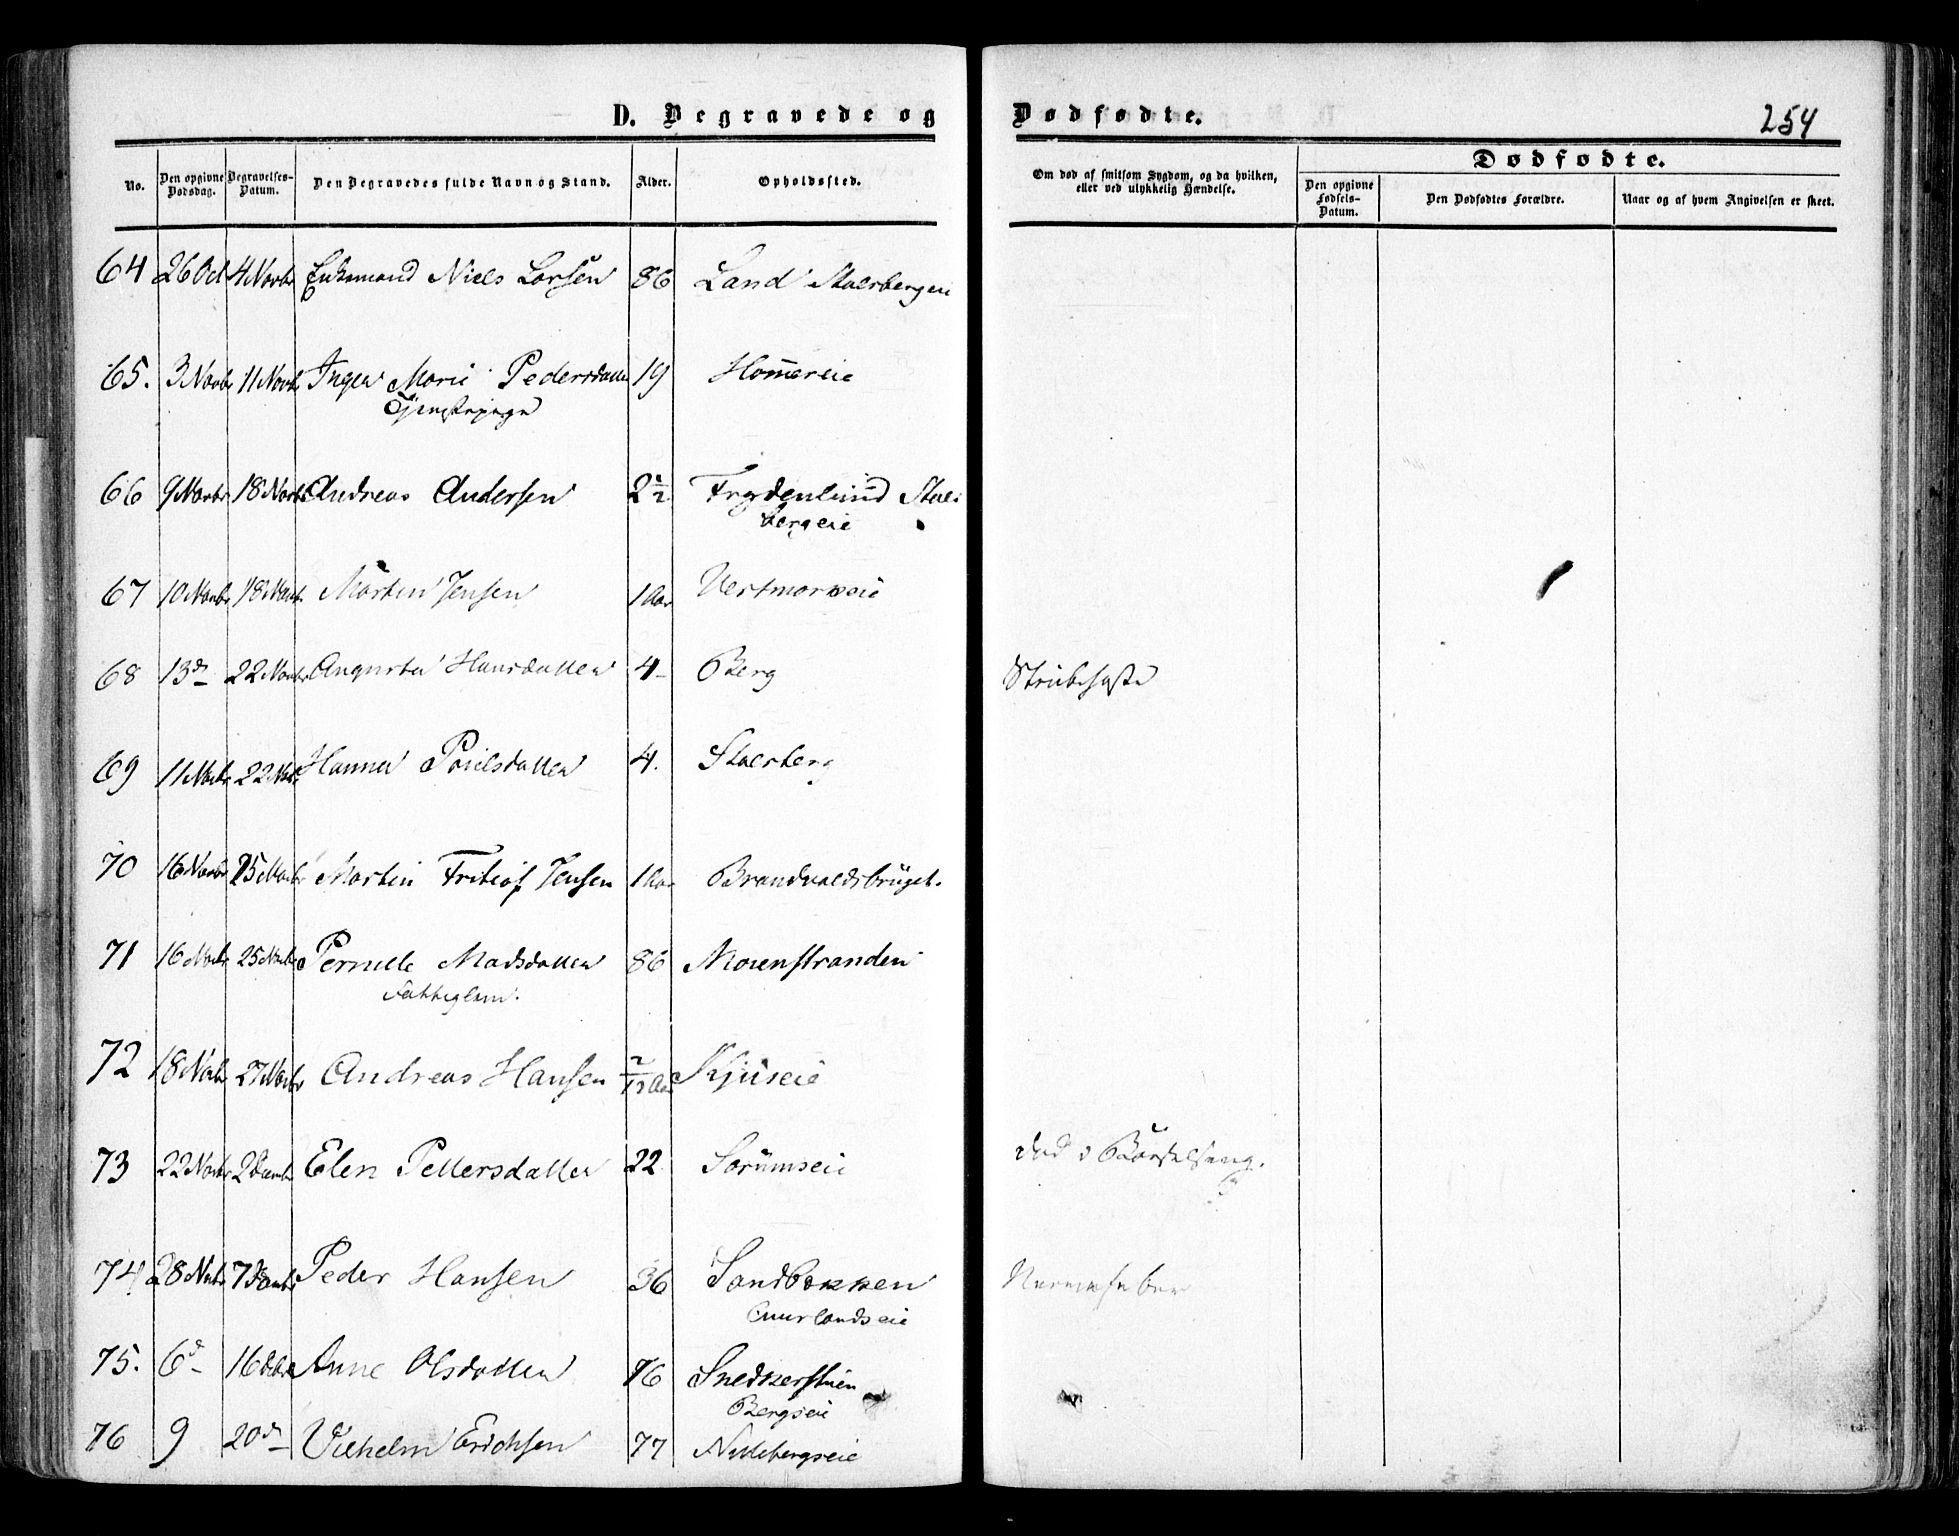 D. Begravede og Dødfødte.
254
No. Den opgivne Dødsdag. Begravelses-Datum. Den Begravedes fulde Navn og Stand. Alder. Opholdssted. Om død af smitsom Sygdom, og da hvilken, eller ved ulykkelig Hændelse. Dødfødte.
Den opgivne Fødsels-Datum. Den Dødfødtes Forældre. Naar og af hvem Angivelsen er skeet.
64 26 Oct 4 Novbr Enkemand Niels Larsen 86 Land Staerbergeie
65. 3 Novbr 11 Novb Inger Marie Pedersdatter 19 Homereie
Tjenstepige
66 9 Novbr 18 Novb Andreas Andersen 2 1/2 Frydenlund Staer
bergeie
67 10 Novbr 18 Novb Morten Jensen 1 Aar Vestmorkseie
68 13 d 22 Novbr Augusta Hansdatter 4 Berg Strubehoste
69 11 Novbr 22 Nov Hanna Poulsdatter 4. Staerberg
70 16 Novbr 25 Novbr Martin Fritiof Jensen 1 Aar Brandvoldsbruget.
71 16 Novbr 25 Novbr Pernille Madsdatter 86 Moenstranden
Fattiglem.
72 18 Novbr 27 Novbr Andreas Hansen 2/12 Aar Kjuseie
73 22 Novbr 2 Decembr Elen Pettersdatter 22 Sorumseie død i Barselseng.
74 28 Novbr 7 Decembr Peder Hansen 36 Sandbakken Nervefeber
Cuurlandseie
75. 6 d 16 Debr Anne Olsdatter 76 Snedkerstuen
Bergseie
76 9 20 d Vilhelm Erichsen 77 Nittebergseie